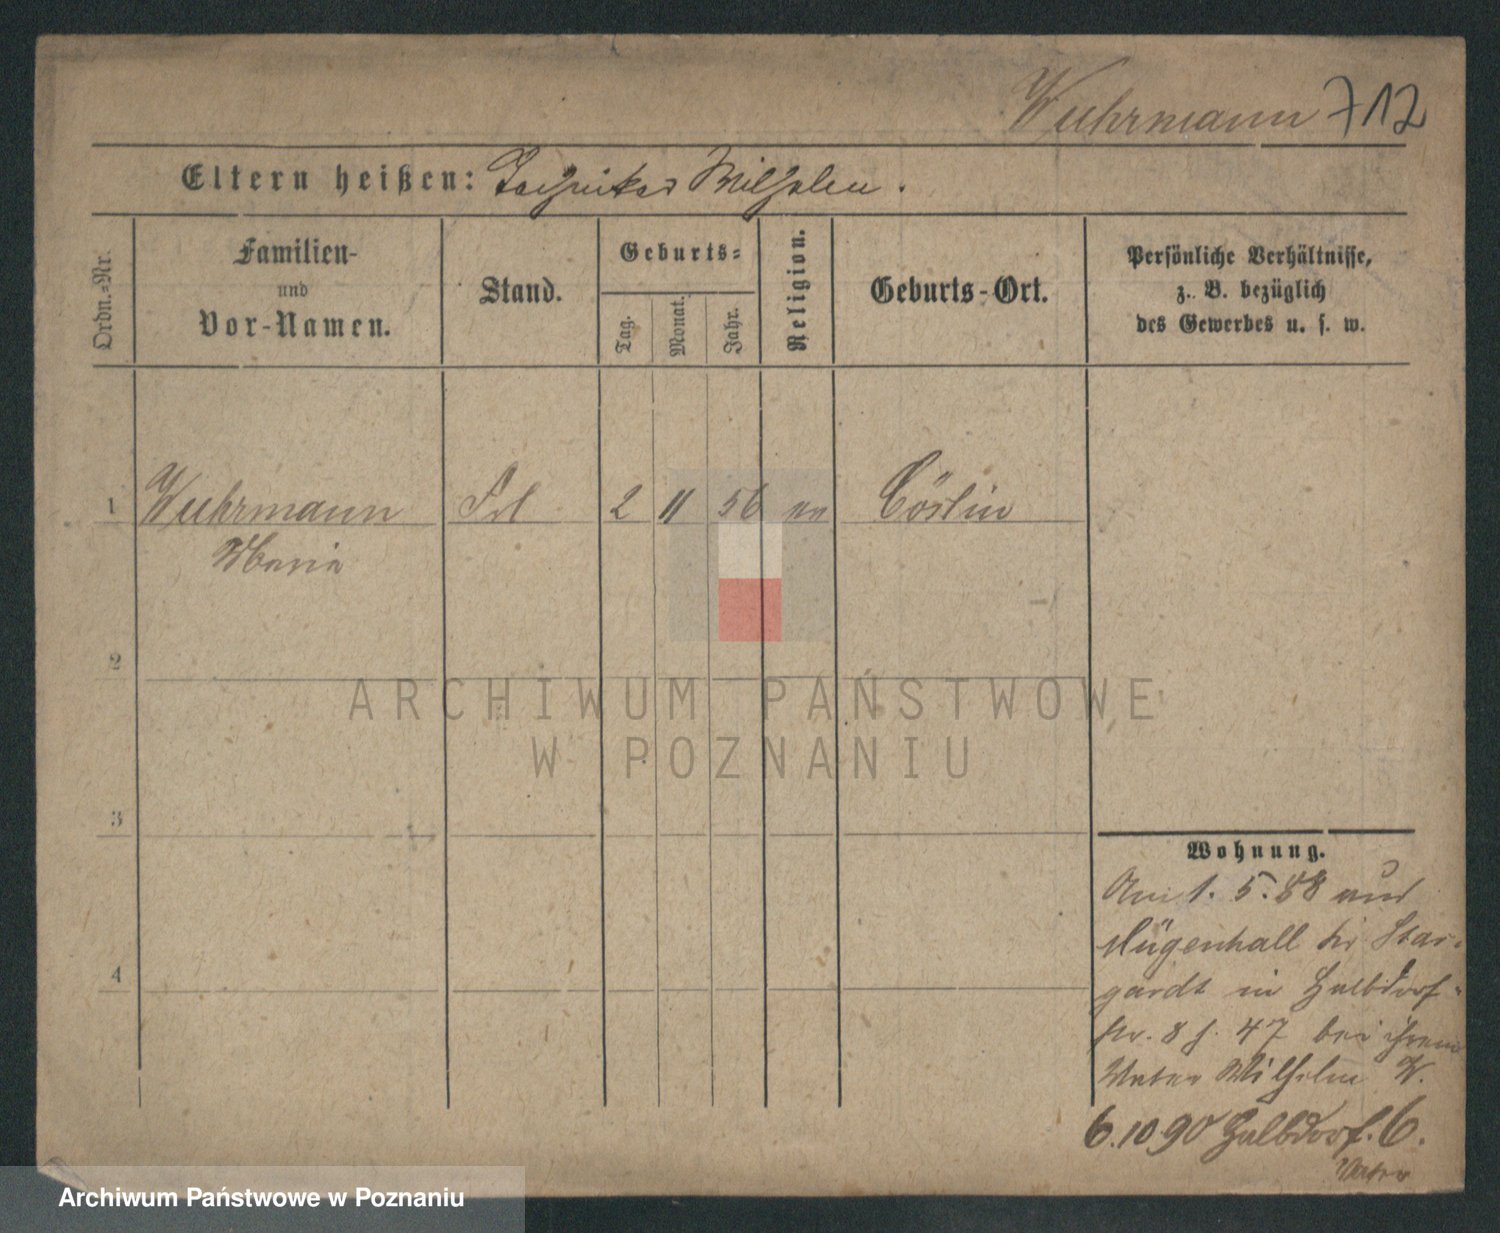 Wuhrmann 712
Eltern heißen: Techniker Wilhelm.
Ordn.-Nr.
Familien-
und
Vor-Namen.
Stand.
Geburts-
Tag.
Monat.
Jahr.
Religion.
Geburts-Ort.
Persönliche Verhältnisse,
z. B. bezüglich
des Gewerbes u. s. w.
1 Wuhrmann Frl 2 11 56 ev Cöslin
Maria
2
3
4
Wohnung.
Am 1. 5. 88 aus
Mügenhall Kr Star-
gardt in Halbdorf-
str. 8 b. 47 bei ihrem
Vater Wilhelm W.
6. 10 90 Halbdorf. 6.
Vater
ARCHIWUM PAŃSTWOWE
W POZNANIU
Archiwum Państwowe w Poznaniu